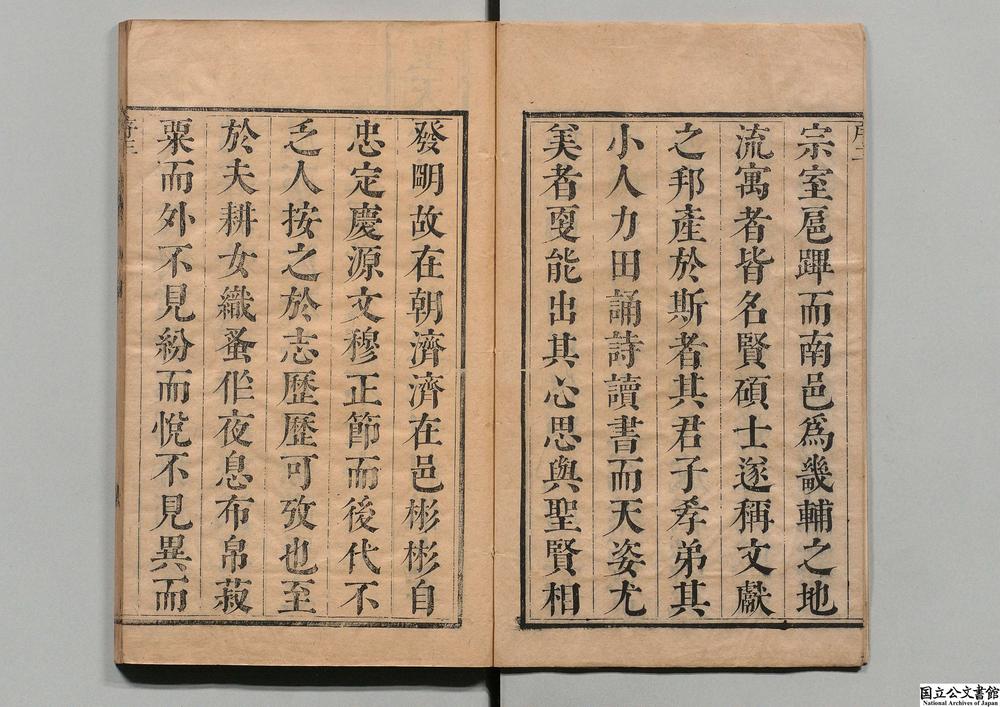 宗室扈蹕而南邑爲畿輔之地
流寓者皆名賢碩士遂稱文獻
之邦產於斯者其君子孝弟其
小人力田誦詩讀書而天姿尤
美者更能出其心思與聖賢相
發明故在朝濟濟在邑彬彬自
忠定慶源文穆正節而後代不
乏人按之於志歷歷可攷也至
於夫耕女織蚤作夜息布帛菽
粟而外不見紛而悅不見異而
国立公文書館
National Archives of Japan